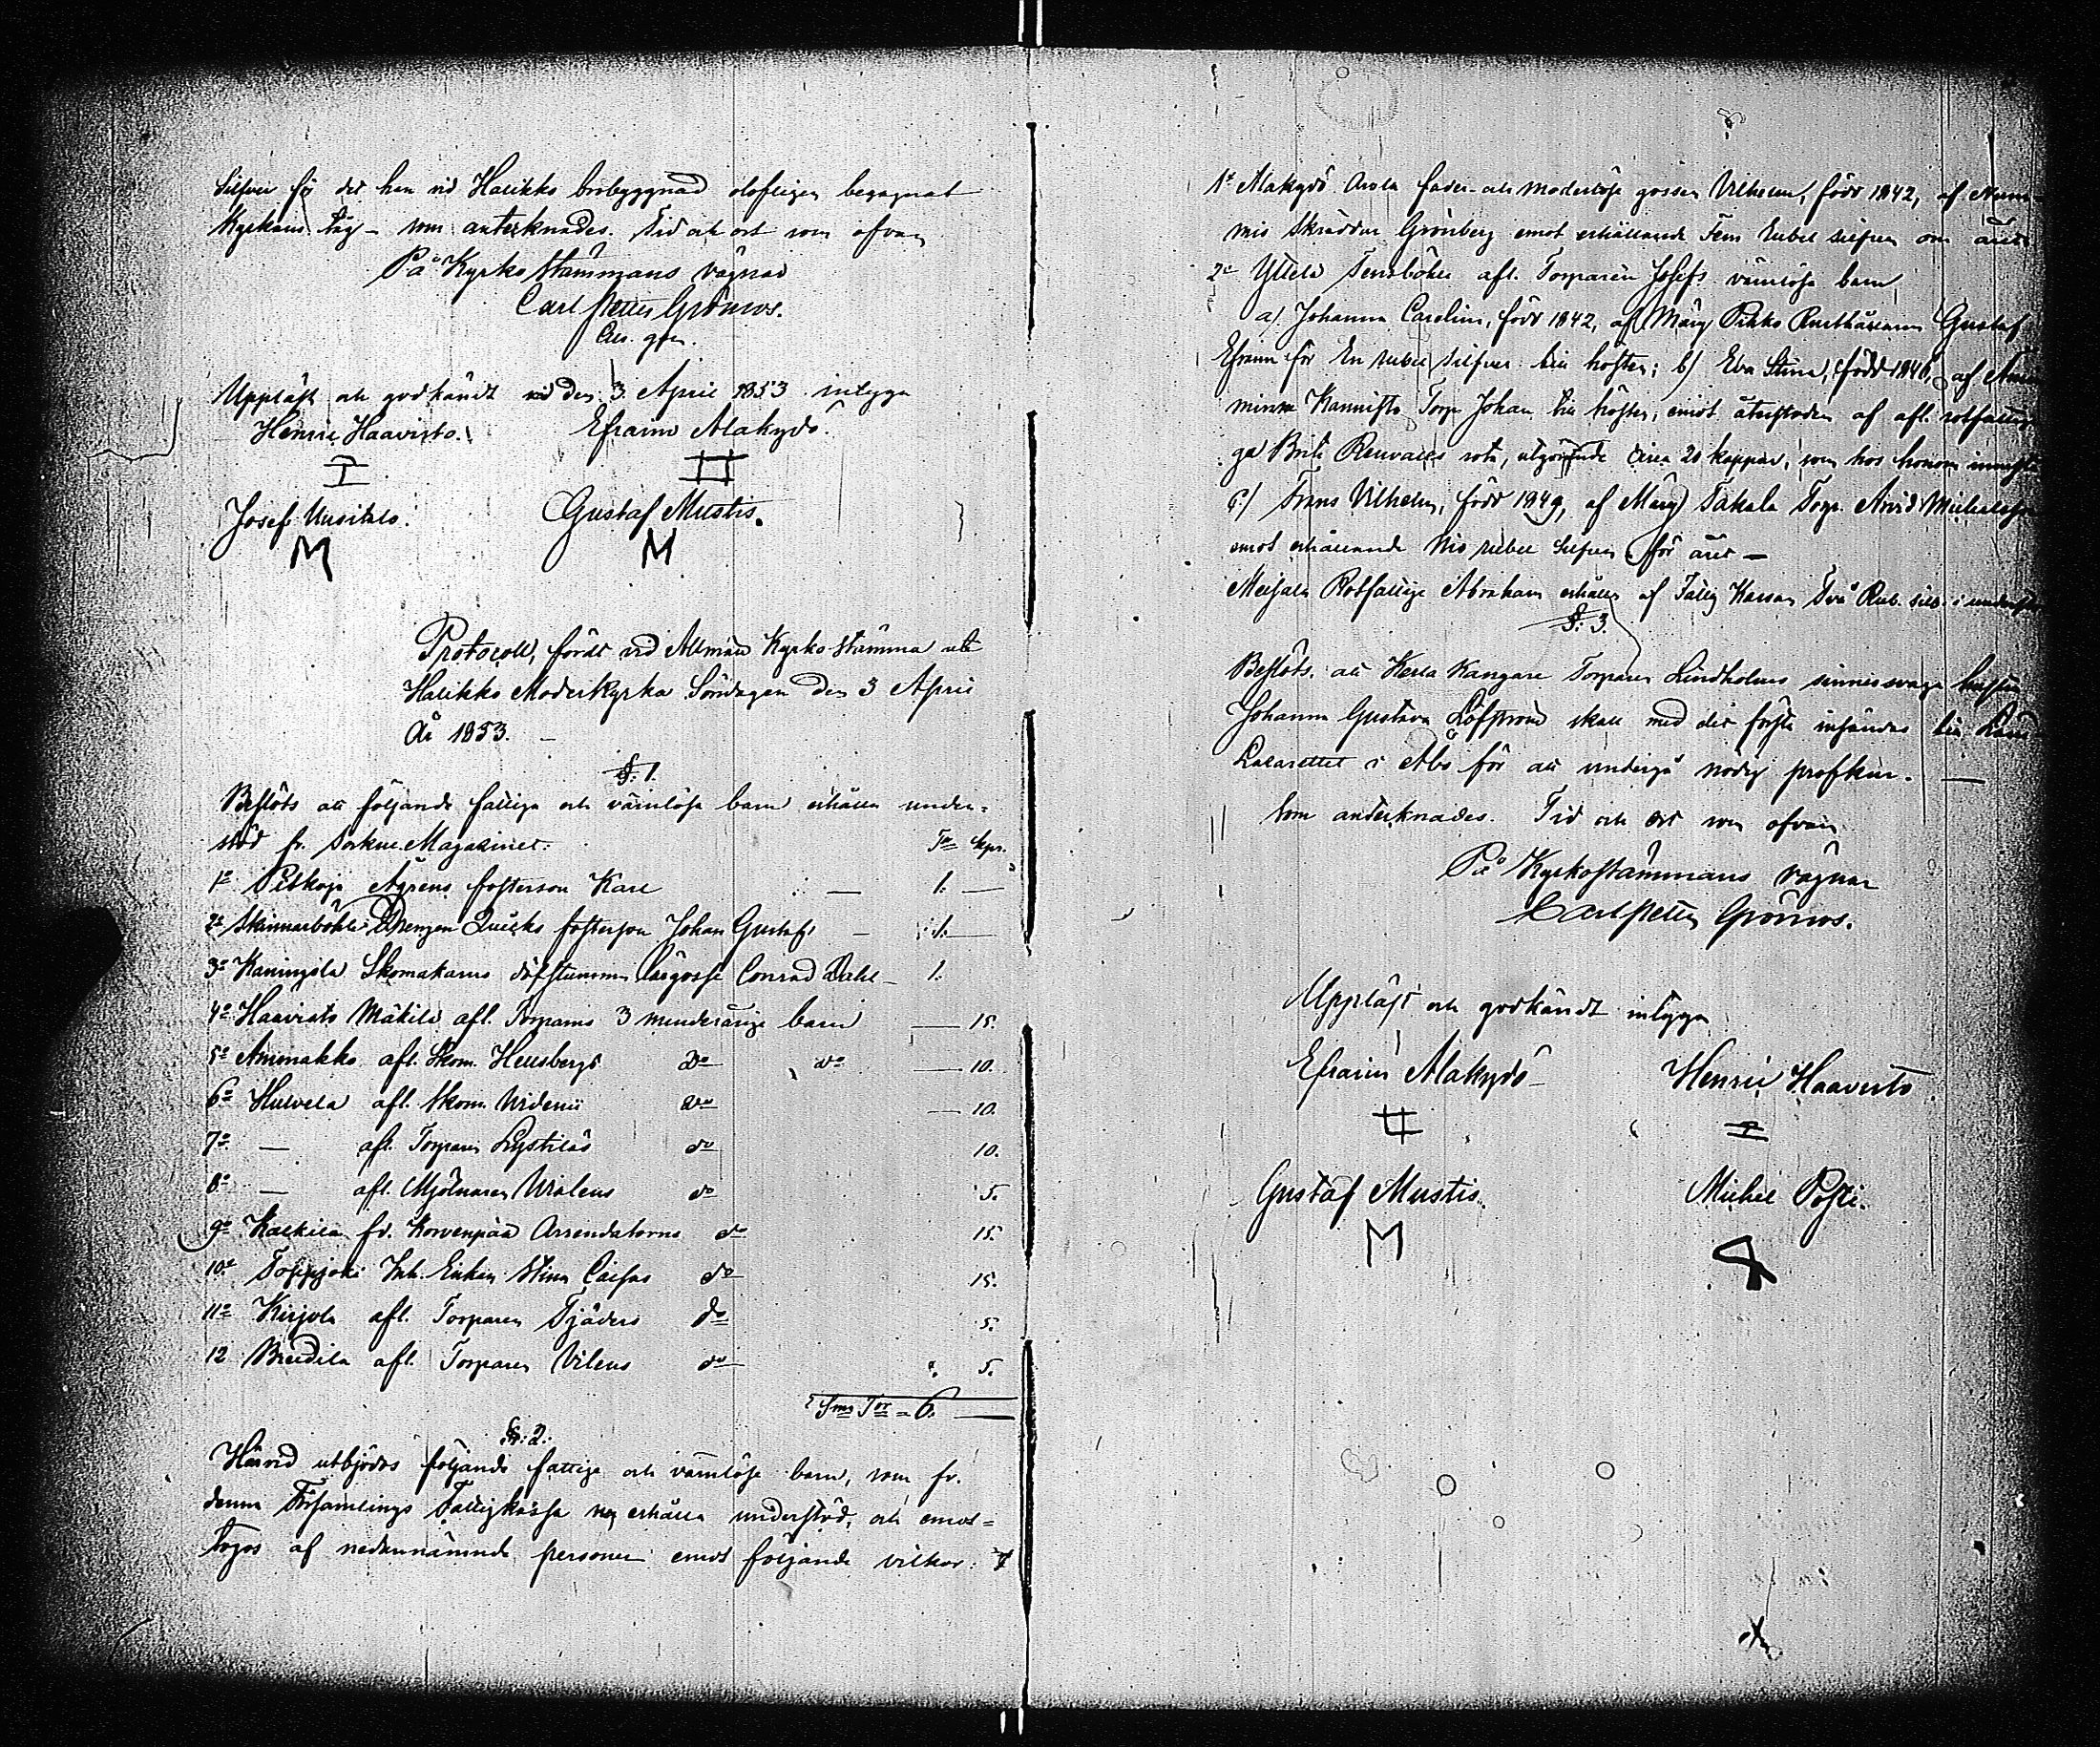 Silfver för det han vid Halikko brobyggnad olofligen begagnat
Kyrkans tåg – som antecknades. Tid och ort som ofvan
På Kyrkostämmans vägnar
Carl Petter Grönroos.
Uppläst och godkändt vid den 3 April 1853 intyga
Henric Haavisto. Efraim Alakydö.
Josef Uusitalo. Gustaf Mustis.
M M
Protocoll, fördt vid Allmän Kyrko stämma uti
Halikko Moderkyrka Söndagen den 3 April
År 1853. –
§. 1.
Beslöts att följande fattiga och värnlösa barn erhålla under-
stöd fr. Sockne Magasinet. Tr kpr.
1o Pitkoja Ågrens fosterson Karl — 1. —
2o Skinnarböhle Drengen Quicks fosterson Johan Gustaf – 1. —
3o Kaningola Skomakarns döfstumma lärgosse Conrad Dahl – 1.
4o Haavisto Mäkilä afl. Torparns 3 minderåriga barn — 15.
5o Ammakko afl. Skom. Hellsbergs do do — 10.
6o Hulvela afl. Skom. Widenii do — 10.
7o — afl. Torparen Lystiläs do 10.
8o — afl. Mjölnaren Walens do 5.
9o Kalkila fd. Korvenpää Arrendatorns do 15.
10o Toppjoki Inh. Enkan Stina Caisas do 15.
11o Kirjola afl. Torparen Tjäders do 5.
12 Bredila afl. Torparen Vilens do 5.
Sma Tr = 6. —
§. 2.
Härvid utbjödos följande fattige och värnlösa barn, som fr.
denna Församlings Fattigkassa erhålla understöd, och emot-
togos af nedannämnde personer emot följande vilkor:
1o Alakydö Arola fader- och moderlösa gossen Vilhelm, född 1842, af
mis Skräddar Grönberg emot erhållande Fem rubel silfver om året
2o Yltelä afl. Torparen Josefs värnlösa barn
a) Johanna Carolina, född 1842, af Märy Pikko Rusthållaren Gustaf
Efraim för En rubel silfver till hösten; b) Eva Stina, född 1846, af
minne Kannisto Torp. Johan till hösten, emot återstoden af afl. rotfatti
ga Brita Renvalls rota, utgörande circa 20 kappar, som hos honom
c) Frans Vilhelm, född 1849, af Märy Takala Torp. Arvid Michelsson
emot erhållande Nio rubel Silfver för året –
Meisala Rotfattige Abraham erhåller af Fattig Kassan Två Rub. silv. i
§. 3.
Beslöts, att Kesla Kangare Torparen Lindholms sinnessvaga hustru
Johanna Gustava Löfström skall med det första insändas till Läns
Lazarettet i Åbo för att undergå nödig profkur. —
Som antecknades. Tid och ort som ofvan
På Kyrkostämmans vägnar
Carl Petter Grönroos.
Uppläst och godkändt intyga
Efraim Alakydö Henric Haavisto
Gustaf Mustis. Michel Posti.
M